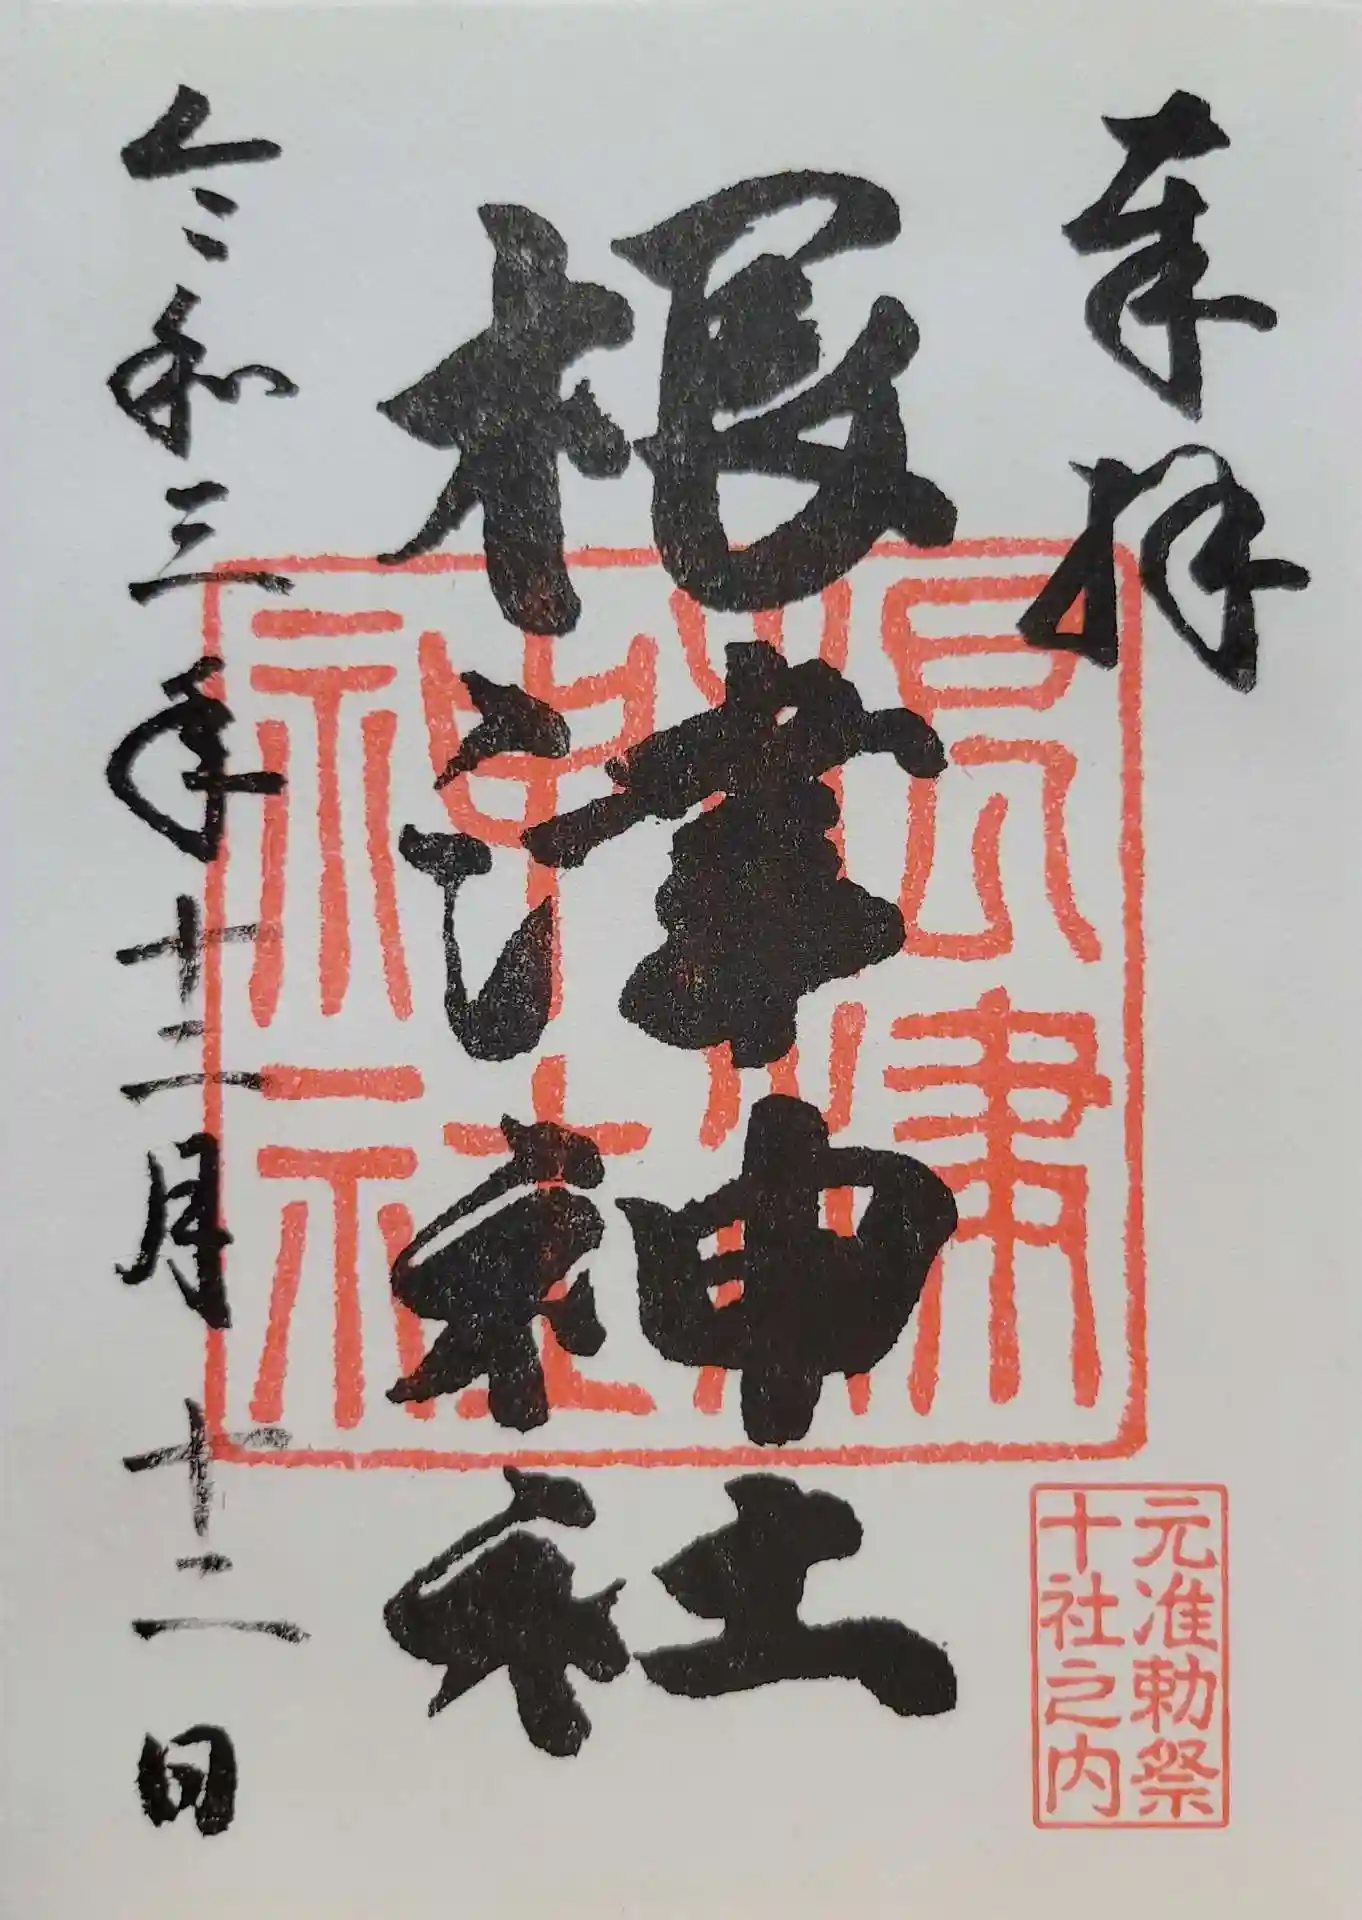 奉拝
根津神社
令和三年十二月十二日
根津
神社
元准勅祭
十社之内